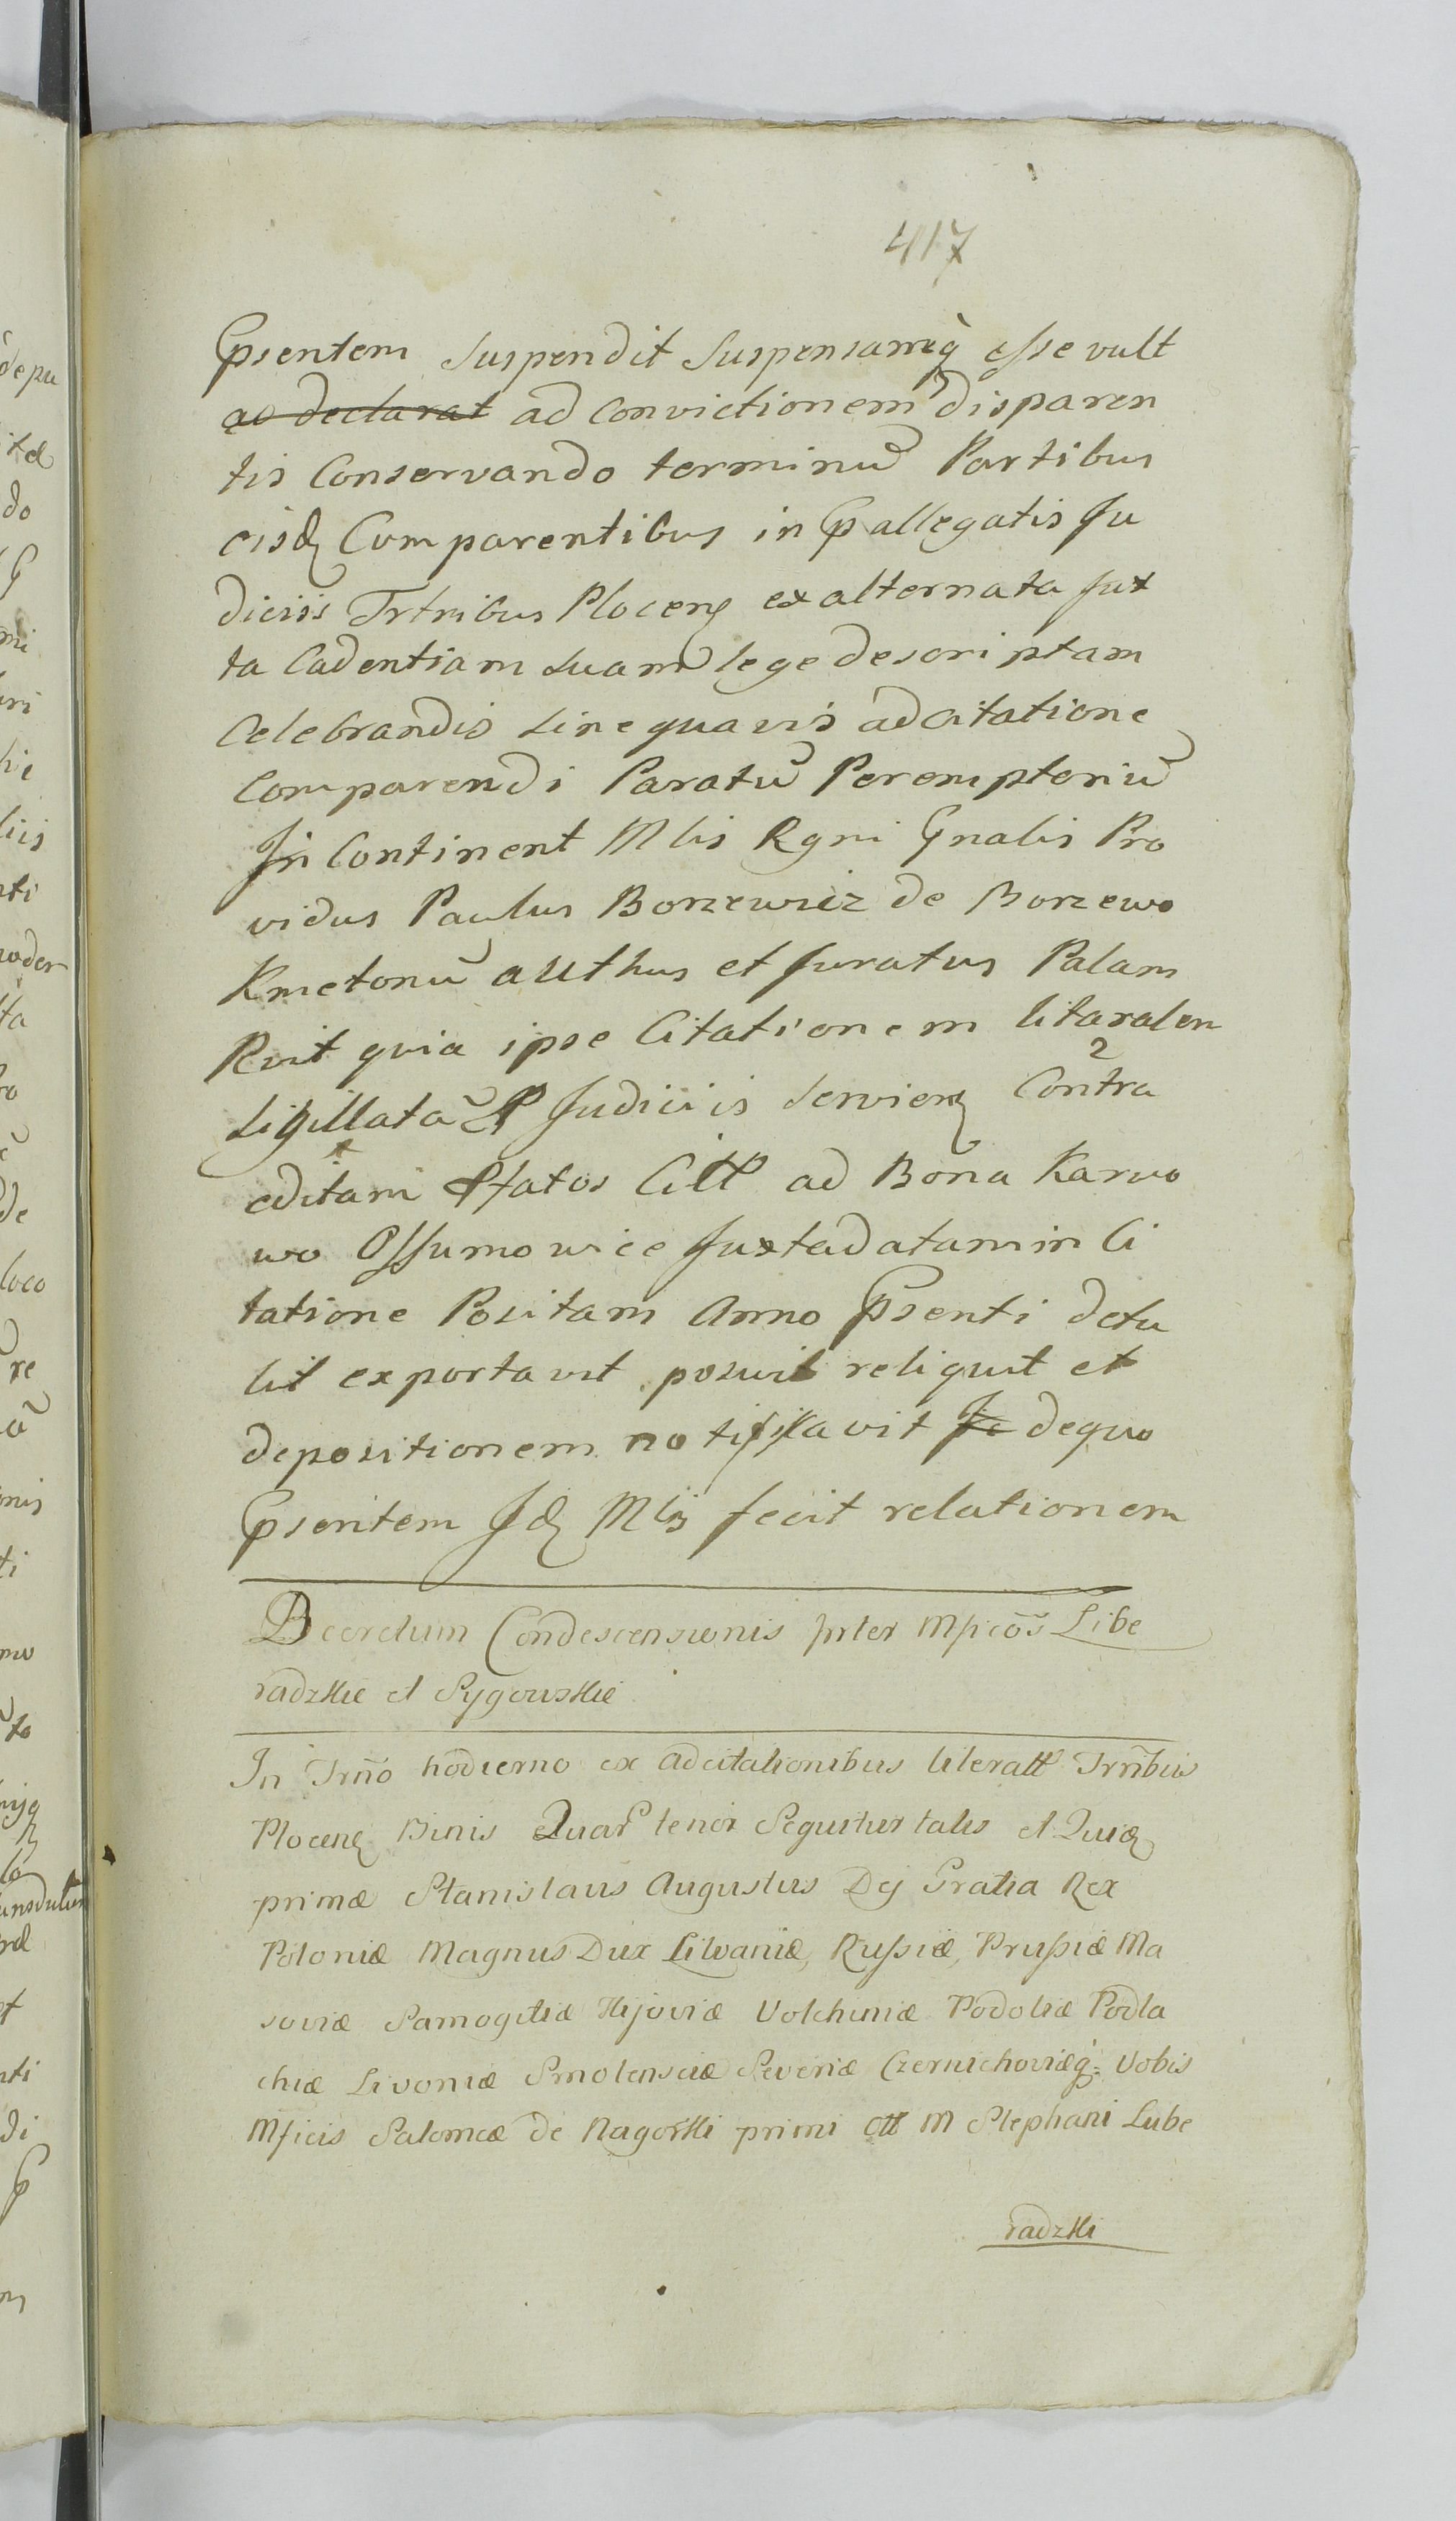 417
Psentem suspendit suspensamq̀ esse vult
ac declarat ad Convictionem disparen
tis Conservando terminū Partibus
eisd Comparentibus in Pallegatis Ju
diciis Trtribus Plocen ex alternata Jux
ta Cadentiam suam lege descriptam
Celebrandis sine quavis adcitatione
Comparendi Paratū Peremptoriū
In Continent Mlis Rgni Gnalis Pro
vidus Paulus Borzewicz de Borzewo
Kmetonū authus et Juratus Palam
Rvit quia ipse Citationem litaralem
sigillatā P Judiciis servien Contra
editam Pfatos Citt ad Bona Karwo
wo Ossumowice Juxta datam in Ci
tatione Positam Anno Psenti detu
lit exportavit posuit reliquit et
depositionem notificavit Je dequo
Psentem Jd Mlis fecit relationem
Decretum Condescensionis Inter Mficos Libe
radzkie et Sygowskie
In Trño hodierno ex adcitationibus literatt Trribus
Plocen Binis Quar tenor Sequitur talis et Quid
primæ Stanislaus Augustus Dej Gratia Rex
Poloniæ Magnus Dux Litvaniæ, Russiæ, Prussiæ Ma
soviæ Samogitiæ Kijoviæ Volchiniæ Podoliæ Podla
chiæ Livoniæ Smolensciæ Severiæ Czernichoviæq̀: Vobis
Mficis Salomeæ de Nagorki primi ott M Stephani Lube
radzki